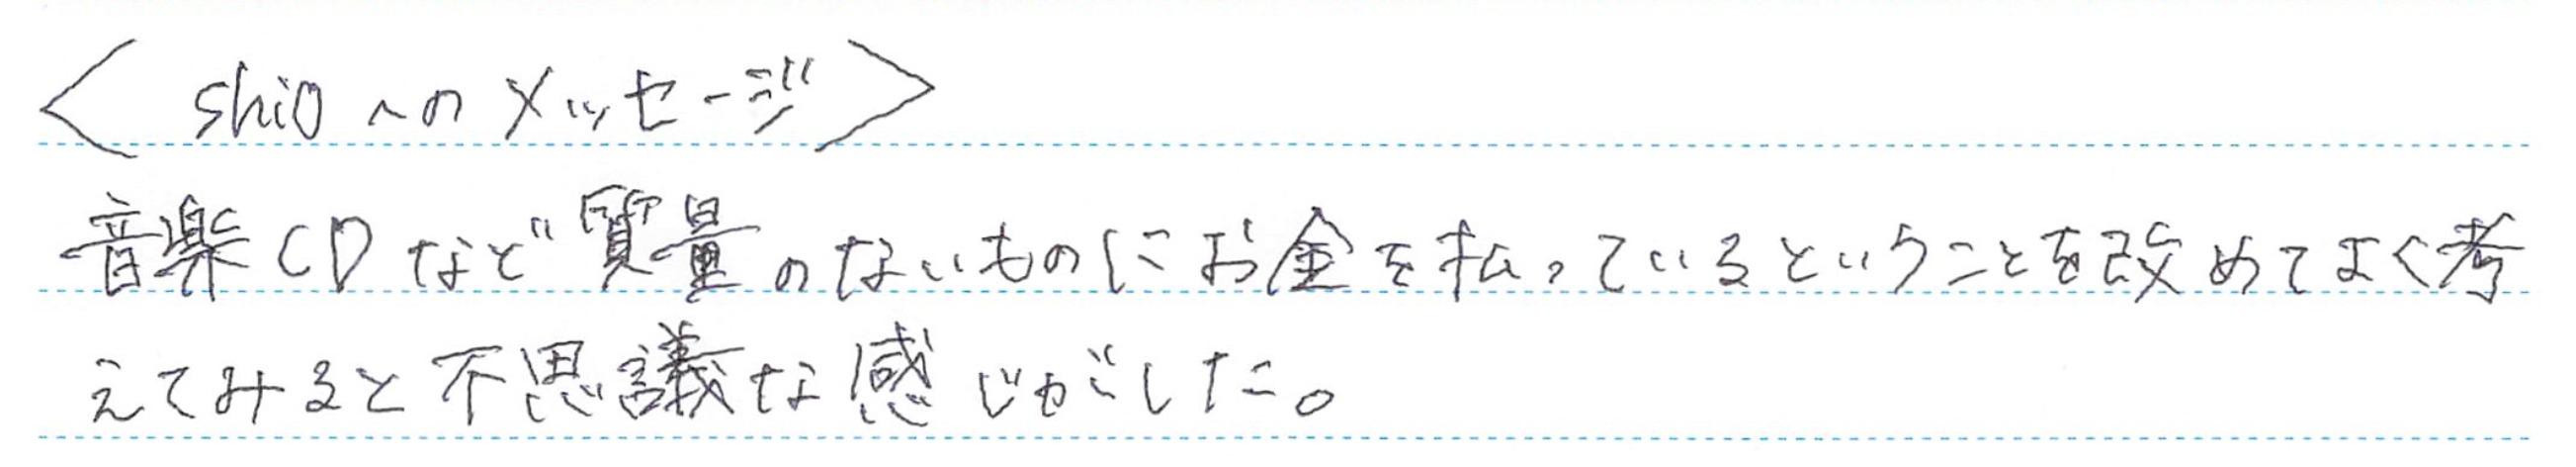 < shioへのメッセージ >
音楽CDなど質量のないものにお金を払っているということを改めてよく考
えてみると不思議な感じがした。